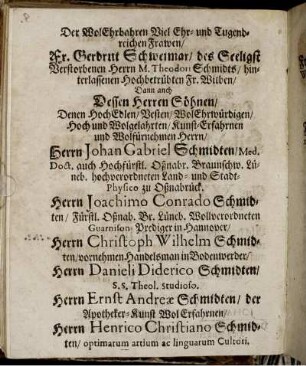 Der WolEhrbahren Viel Ehr- und Tugend-
reichen Frawen/
Fr. Gerdrut Schweimar/ des Seeligst
Verstorbenen Herrn M. Theodori Schmidts/ hin-
terlassenen Hochbetrübten Fr. Witben/
Dann auch
Dessen Herren Söhnen/
Denen HochEdlen/ Vesten/ WolEhrwürdigen/
Hoch und Wolgelahrten/ Kunst-Erfahrnen
und Wolfürnehmen Herrn/
Herrn Johan Gabriel Schmidten/ Med.
Doct. auch Hochfürstl. Oßnabr. Braunschw. Lü-
neb. hochverordneten Land- und Stadt-
Physico zu Oßnabrück.
Herrn Joachimo Conrado Schmid-
ten/ Fürstl. Oßnab. Br. Lüneb. Wollverordneten
Guarnison-Prediger in Hannover/
Herrn Christoph Wilhelm Schmid-
ten/ vornehmen Handelsman in Bodenwerder/
Herrn Danieli Diderico Schmidten/
S. S. Theol. Studioso.
Herrn Ernst Andreæ Schmidten/ der
Apotheker-Kunst Wol Erfahrnen/
Herrn Henrico Christiano Schmid-
ten/ optimarum artium ac linguarum Cultori.